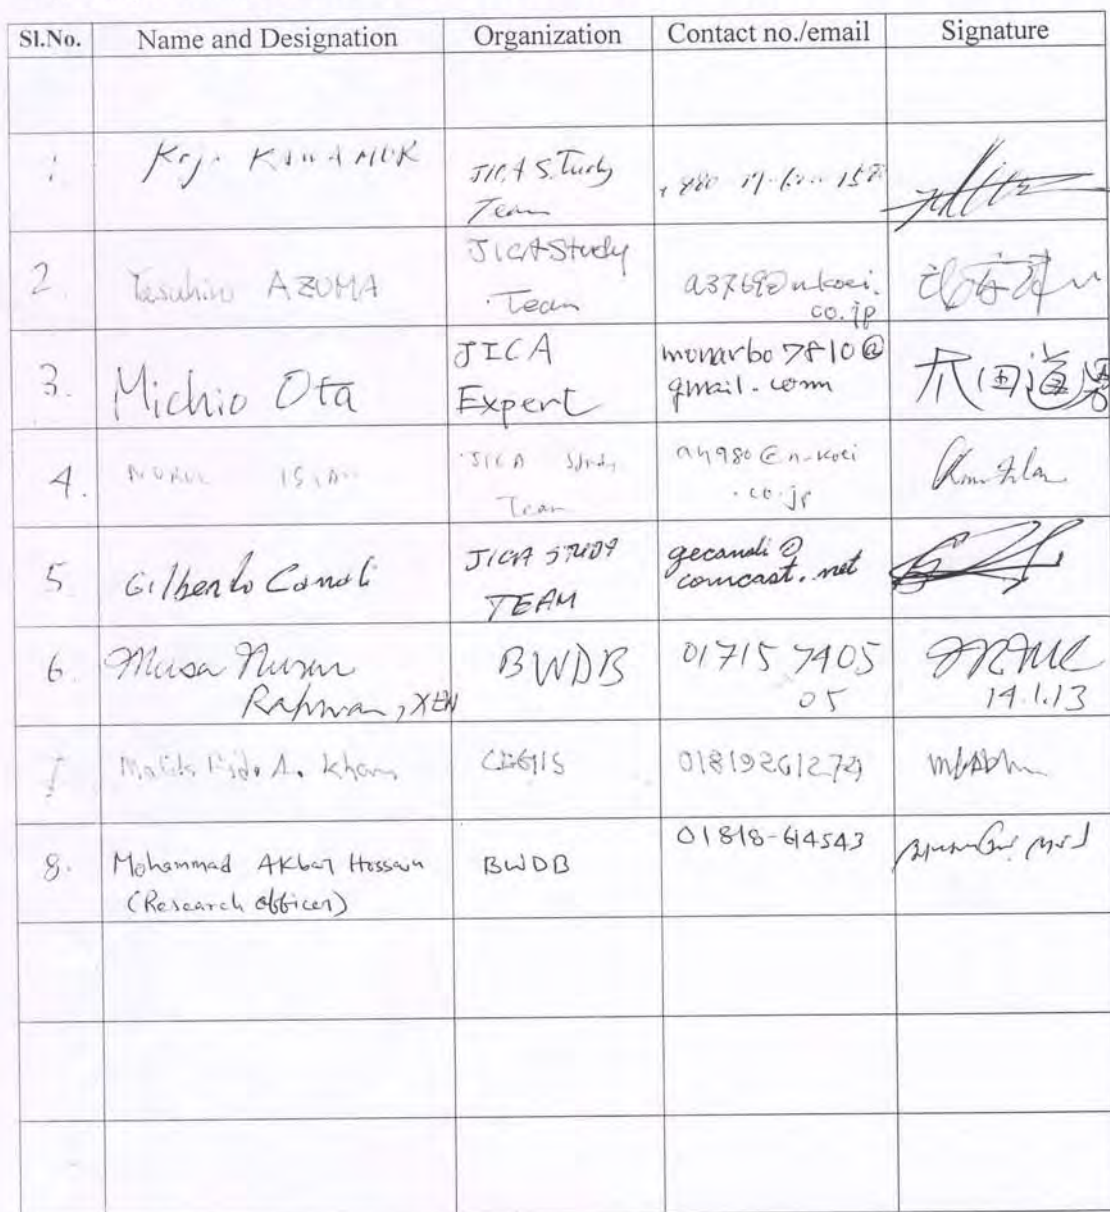 Sl.No. Name and Designation Organization Contact no./email Signature
1. JICA Study
Team
2. Yasuhiro AZUMA JICA Study
Team a3769@n-koei.
co.jp
3. Michio Ota JICA
Expert monarbo7810@
gmail.com 太田道男
4. NURUL ISLAM JICA Study
Team a4980@n-koei
.co.jp
5. Gilberto Canali JICA STUDY
TEAM gecanali@
comcast.net
6. Musa Nurur
Rahman, XEN BWDB 01715 7405
05 14.1.13
7 Malik Fida A. Khan CEGIS
8. Mohammad Akbar Hossain
(Research Officer) BWDB 01818-614543